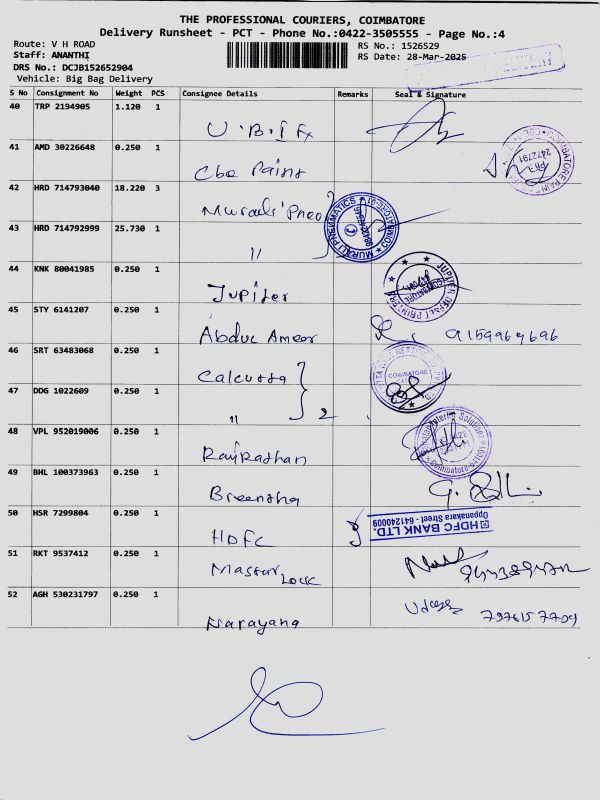 THE PROFESSIONAL COURIERS, COIMBATORE
Delivery Runsheet - PCT - Phone No.:0422-3505555 - Page No.:4
Route: V H ROAD
RS No.: 1526529
Staff: ANANTHI
RS Date: 28-Mar-2025
DRS No.: DCJB152652904
Vehicle: Big Bag Delivery
S No Consignment No Weight PCS Consignee Details Remarks Seal & Signature
40 TRP 2194905 1.120 1
U.B.I Fx
41 AMD 30226648 0.250 1
Cbe Paint
COIMBATORE PAINT
2472791
42 HRD 714793040 18.220 3
Murali Pneo
MURALI PNEUMATICS
COIMBATORE
43 HRD 714792999 25.730 1
"
44 KNK 80041985 0.250 1
Jupiter
JUPITER OFFSET PRINTERS
COIMBATORE
45 STY 6141207 0.250 1
Abdul Ameer 9159969696
46 SRT 63483068 0.250 1
Calcutta
COIMBATORE
47 DDG 1022609 0.250 1
" 2
48 VPL 952019006 0.250 1
Rajrathan
Solutions
Coimbatore
49 BHL 100373963 0.250 1
50 HSR 7299804 0.250 1
HDFC
HDFC BANK LTD.
Oppanakara Street - 641240009
51 RKT 9537412 0.250 1
Mastar Lock
52 AGH 530231797 0.250 1
Narayana